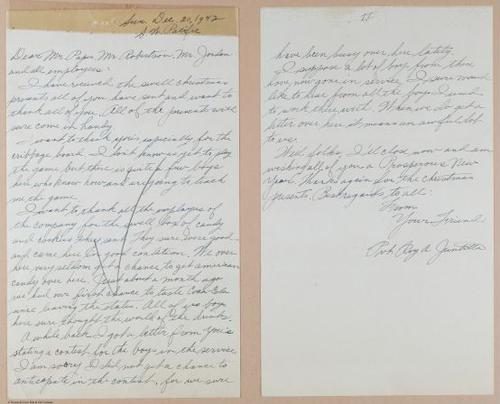 Sun. Dec. 20, 1942
S.W. Pacific
Dear Mr. Pape, Mr. Robertson, Mr. Jordan
and all employees:
I have received the swell Christmas
presents all of you have sent and want to
thank all of you. All of the presents will
sure come in handy.
I want to thank you especially for the
cribbage board. I don't know as yet to play
the game but there is quite a few boys
here who know how and are going to teach
me the game.
I want to thank all the employees of
the company for the swell box of candy
and cookies they sent. They sure were good
and came in good condition. We over
here very seldom get a chance to get american
candy over here. Just about a month ago
we had our first chance to taste Coca Cola
since leaving the states. All of us boys
here sure thought the world of the drinks.
A while back I got a letter from you's
stating a contest for the boys in the service
I am sorry I did not get a chance to
anticipate in the contest, for we sure
II
have been busy over here lately.
I suppose a lot of boys from there
have now gone in service. I sure would
like to hear from all the boys I used
to work there with. When we get a
letter over here it means an awful lot
to us.
Well folks, I'll close now and am
wishing all of you a Prosperous New
Year. Thanks again for the Christmas
presents. Best regards to all:
From
Your Friend
Pvt. Roy A.